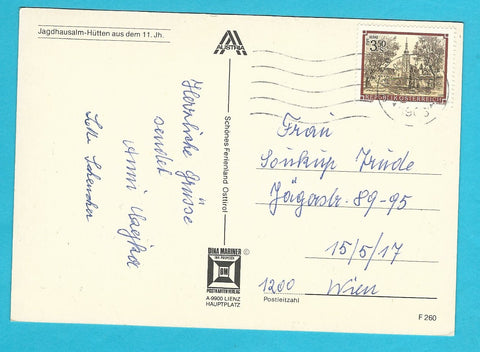 Jagdhausalm-Hütten aus dem 11. Jh.
AUSTRIA
Schönes Ferienland Osttirol
Herzliche Grüsse
sendet
Anni
3.50
REPUBLIK ÖSTERREICH
Frau
Soukup Trude
Jägerstr. 89-95
15/5/17
1200 Wien
Postleitzahl
DINA MARINER ©
DM
POSTKARTENVERLAG
A-9900 LIENZ
HAUPTPLATZ
F 260